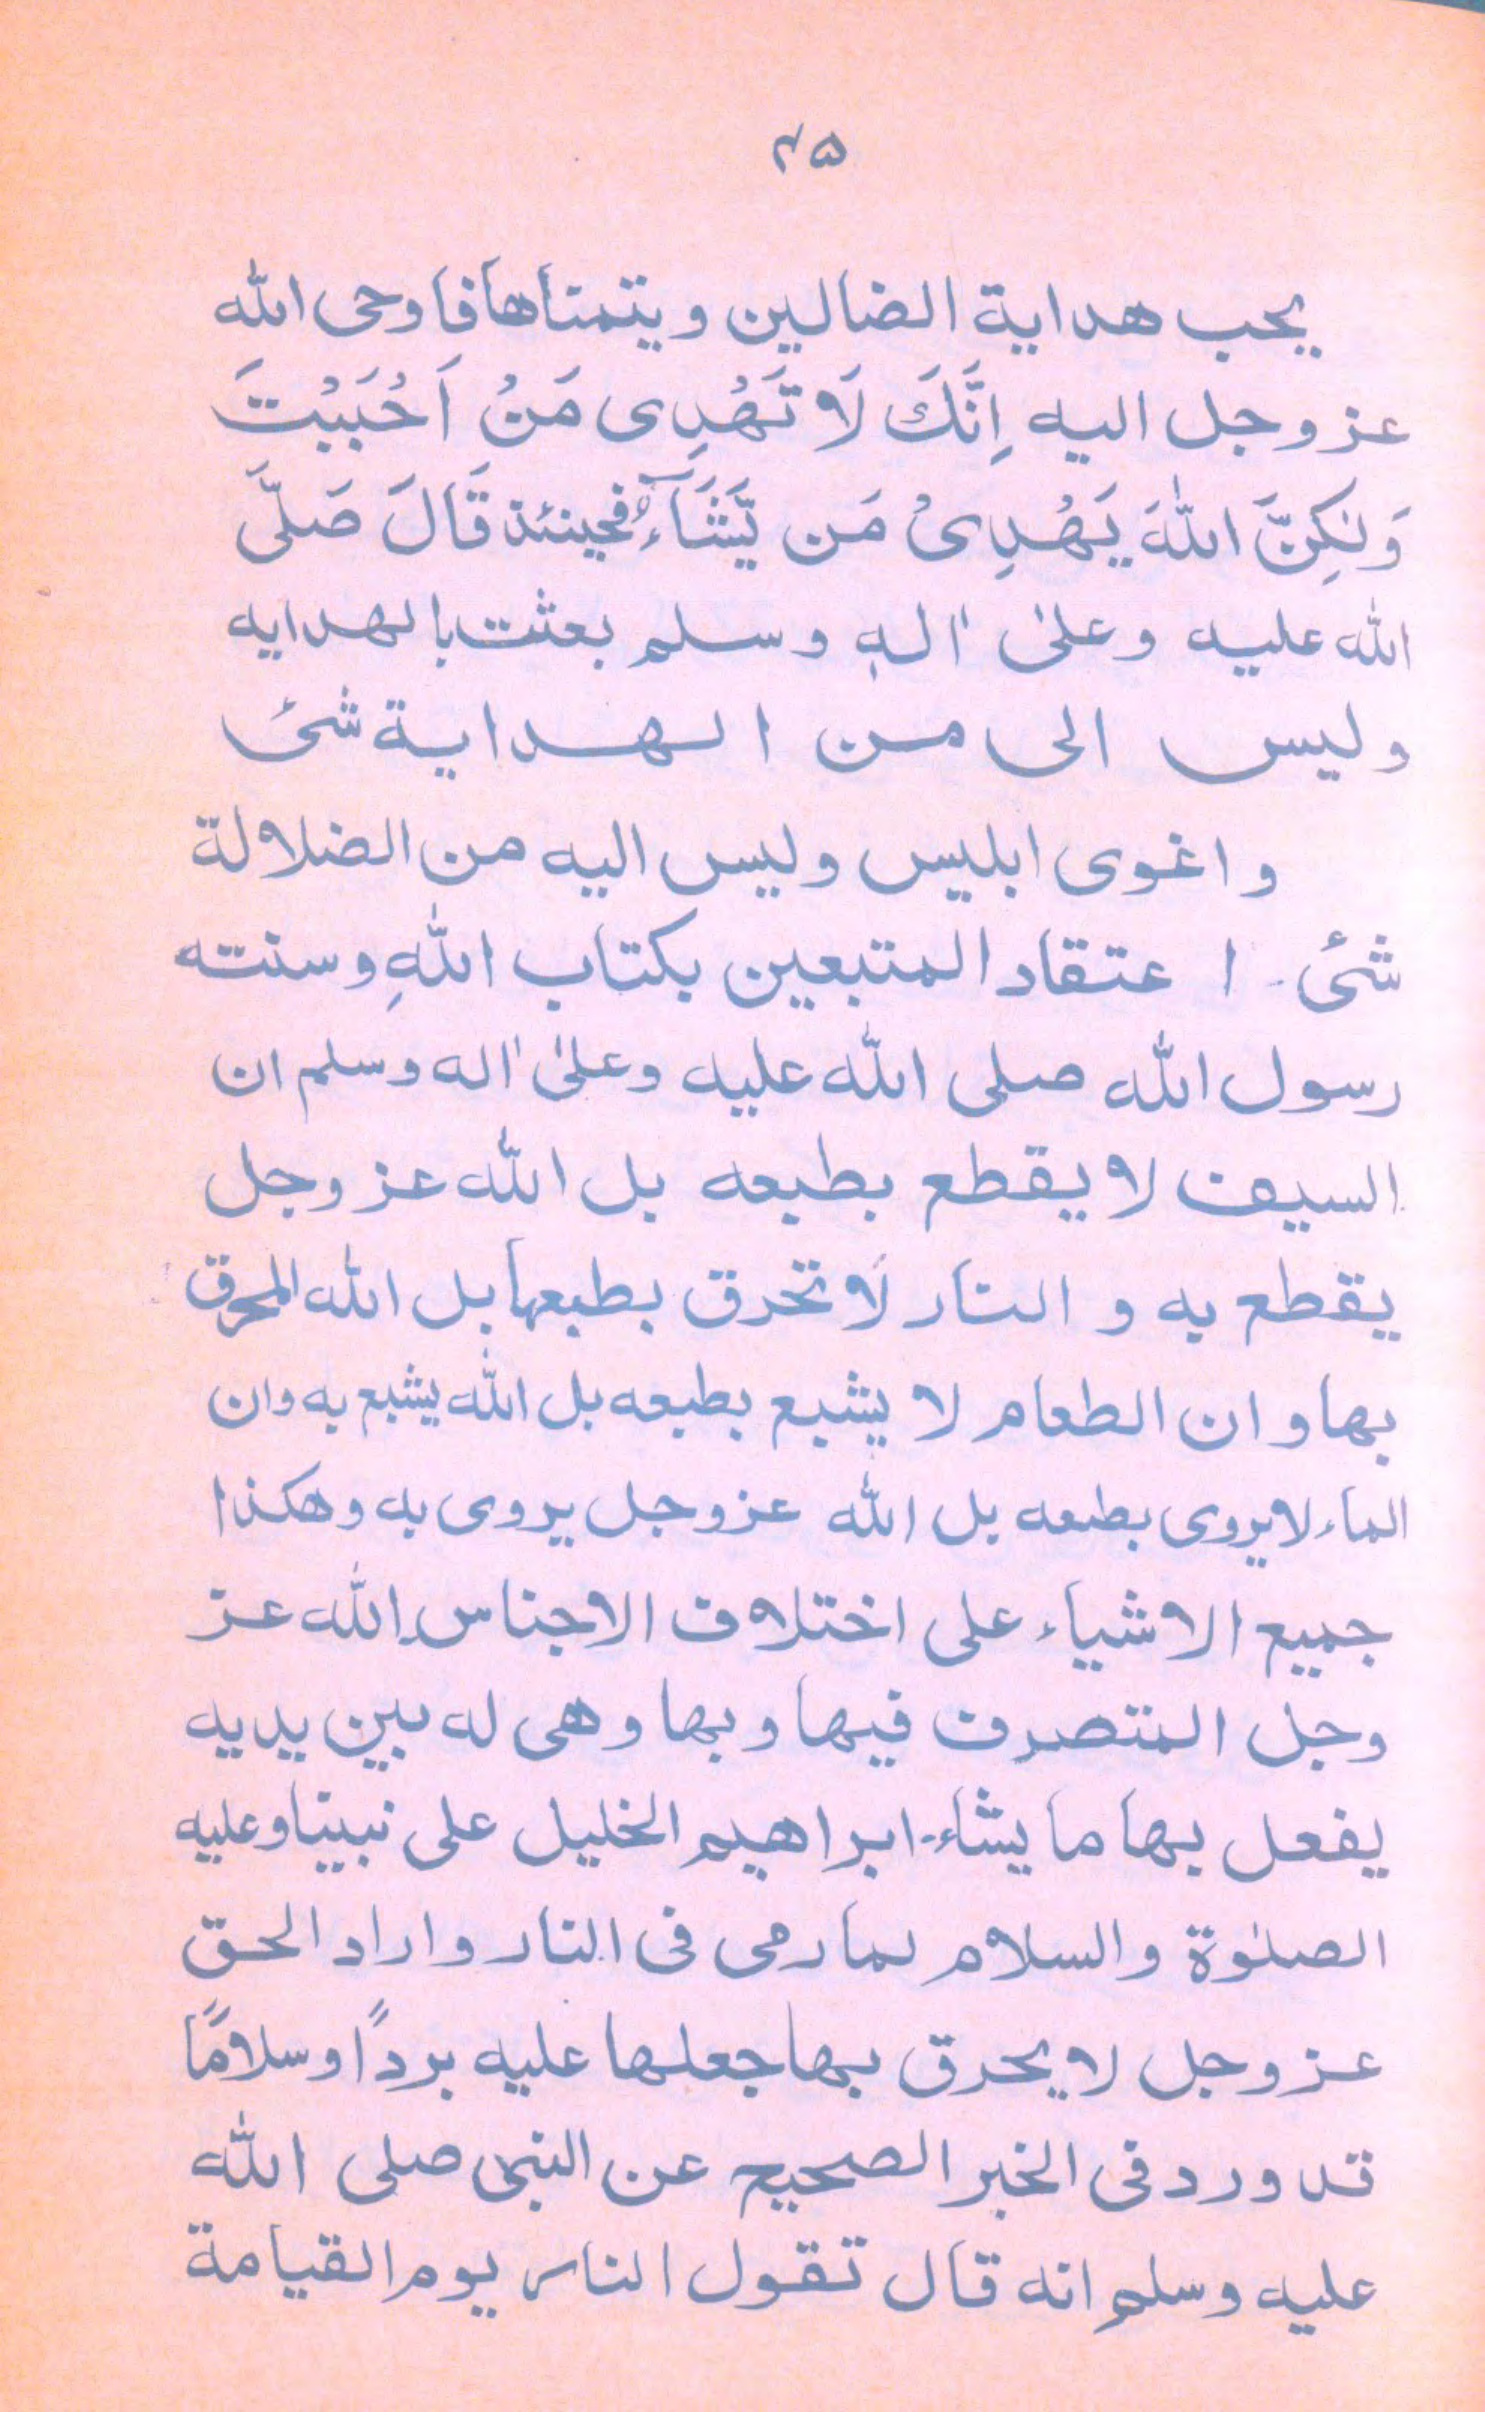 ۴۵
يحب هداية الضالين ويتمناها فاوحى الله
عز وجل اليه اِنَّكَ لَا تَهْدِى مَنْ اَحْبَبْتَ
وَلٰكِنَّ اللّٰهَ يَهْدِىْ مَن يَّشَآءُ فحينئذ قَالَ صَلَّى
الله عليه وعلىٰ اٰلهٖ وسلم بعثت بالهدايه
وليس الى من الهداية شئ
واغوى ابليس وليس اليه من الضلالة
شئ - اعتقاد المتبعين بكتاب اللهِ وسنته
رسول الله صلى الله عليه وعلىٰ اٰله وسلم ان
السيف لا يقطع بطبعه بل الله عز وجل
يقطع به و النار لَا تحرق بطبعها بل الله المحرق
بها وان الطعام لا يشبع بطبعه بل الله يشبع به وان
الماء لا يروى بطبعه بل الله عز وجل يروى به وهكذا
جميع الاشياء على اختلاف الاجناس الله عز
وجل المتصرف فيها وبها وهى له بين يديه
يفعل بها ما يشاء - ابراهيم الخليل على نبينا وعليه
الصلوٰة والسلام لما رمى فى النار واراد الحق
عز وجل لا يحرق بها جعلها عليه بردًا وسلامًا
قد ورد فى الخبر الصحيح عن النبى صلى الله
عليه وسلم انه قال تقول النار يوم القيامة